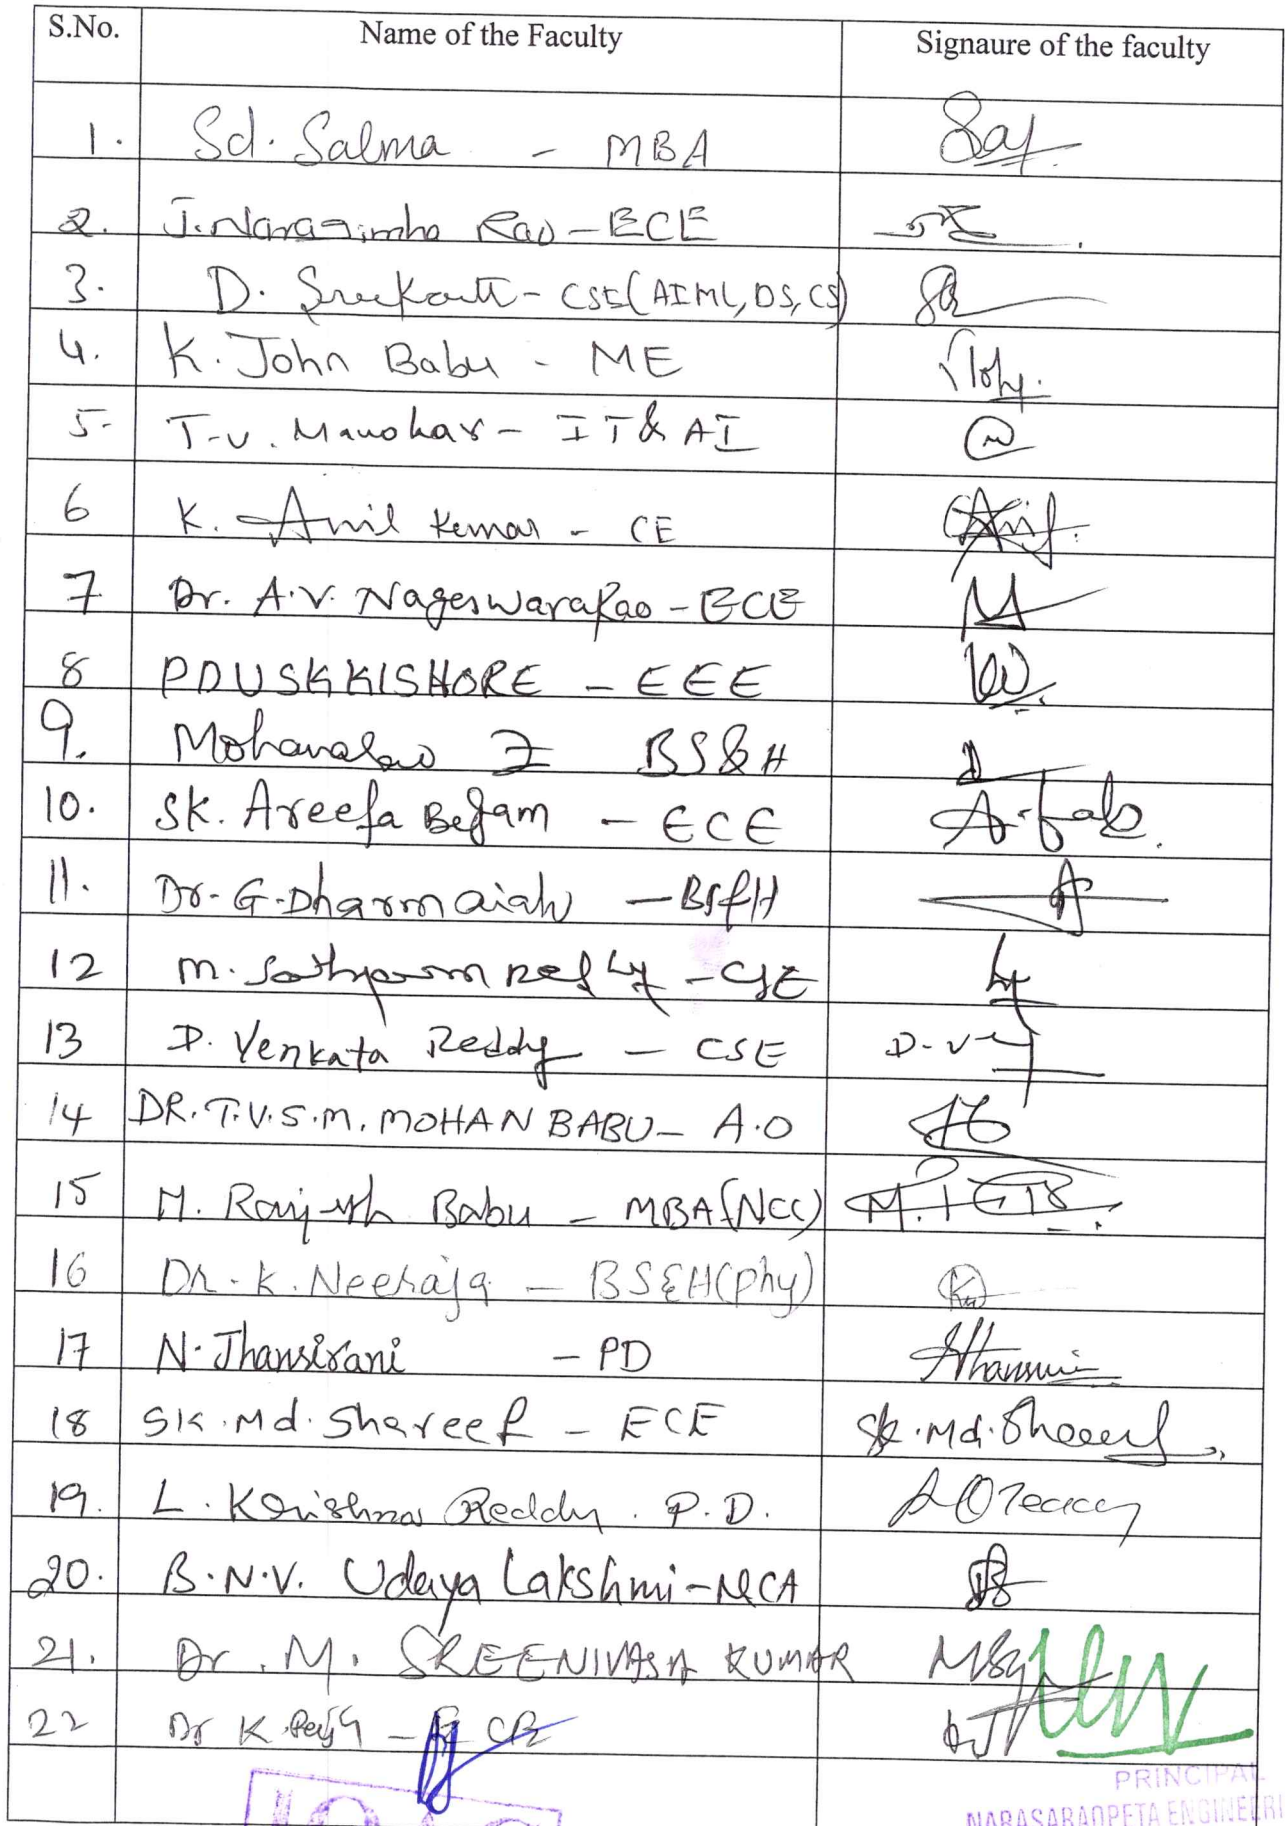 S.No. Name of the Faculty Signaure of the faculty
1. Sd. Salma - MBA
2. J. Narasimha Rao - ECE
3. D. Sreekanth - CSE(AIML, DS, CS)
4. K. John Babu - ME
5- T.V. Manohar - IT & AI
6 K. Anil Kumar - CE
7 Dr. A.V. NageswaraRao - ECE
8 PDUSKKISHORE - EEE
9. Mohanarao BS&H
10. SK. Areefa Begam - ECE
11. Dr. G. Dharmaiah - BS&H
12 M. Reddy - CSE
13 D. Venkata Reddy - CSE
14 DR. T.V.S.M. MOHAN BABU - A.O
15 M. Ranjith Babu - MBA(NCC)
16 Dr. K. Neeraja - BS&H(Phy)
17 N. Jhansirani - PD
18 SK. Md. Shareef - ECE SK. Md. Shareef
19. L. Krishna Reddy. P.D.
20. B.N.V. Udaya Lakshmi - MCA
21. Dr. M. SREENIVASA KUMAR
22 Dr K.
PRINCIPAL
NARASARAOPETA ENGINEERI